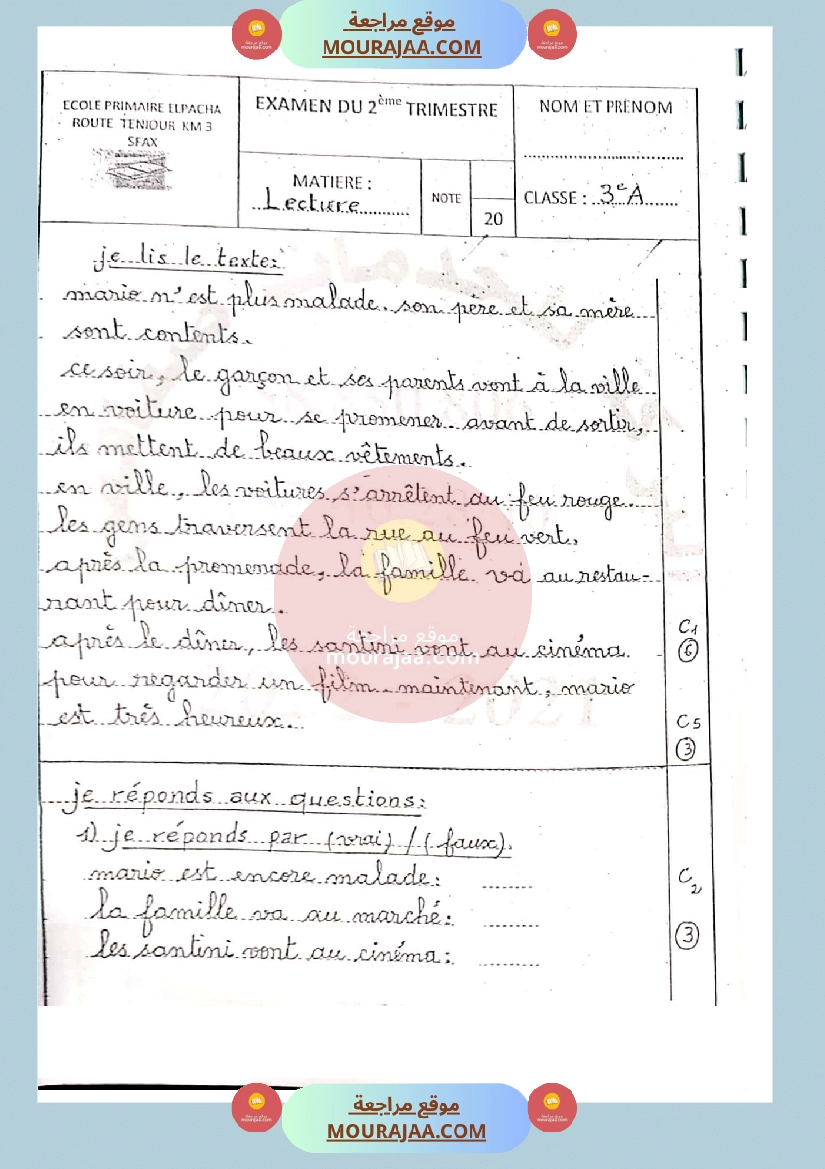 موقع مراجعة
MOURAJAA.COM
ECOLE PRIMAIRE ELPACHA
ROUTE TENIOUR KM 3
SFAX
EXAMEN DU 2ème TRIMESTRE
NOM ET PRENOM
MATIERE :
Lecture
NOTE
20
CLASSE : 3e A
je lis le texte:
mario n'est plus malade. son père et sa mère
sont contents.
ce soir, le garçon et ses parents vont à la ville
en voiture pour se promener. avant de sortir,
ils mettent de beaux vêtements.
en ville, les voitures s'arrêtent au feu rouge.
les gens traversent la rue au feu vert.
après la promenade, la famille va au restau-
rant pour dîner.
après le dîner, les santini vont au cinéma
pour regarder un film. maintenant, mario
est très heureux.
C1
6
C5
3
موقع مراجعة
mourajaa.com
je réponds aux questions:
1) je réponds par (vrai) / (faux).
mario est encore malade: ........
la famille va au marché: ........
les santini vont au cinéma: ........
C2
3
موقع مراجعة
MOURAJAA.COM